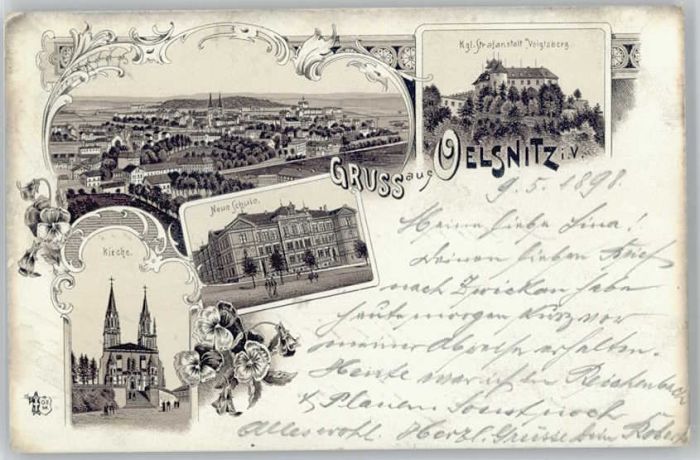 Kgl. Strafanstalt Voigtsberg.
GRUSS aus OELSNITZ i. V.
Neue Schule.
Kirche.
9.5.1898.
Meine liebe Lina!
Deinen lieben Brief
nach Zwickau habe
heute morgen kurz vor
meiner Abreise erhalten.
Heute war ich in Reichenbach
& Plauen sonst noch
Alles wohl. Herzl. Grüsse Dein Robert